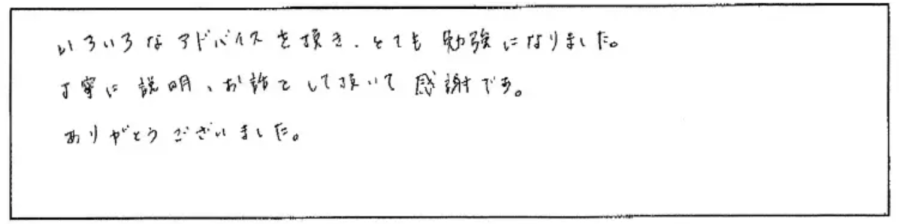 いろいろなアドバイスを頂き、とても勉強になりました。
丁寧に説明、お話をして頂いて感謝です。
ありがとうございました。